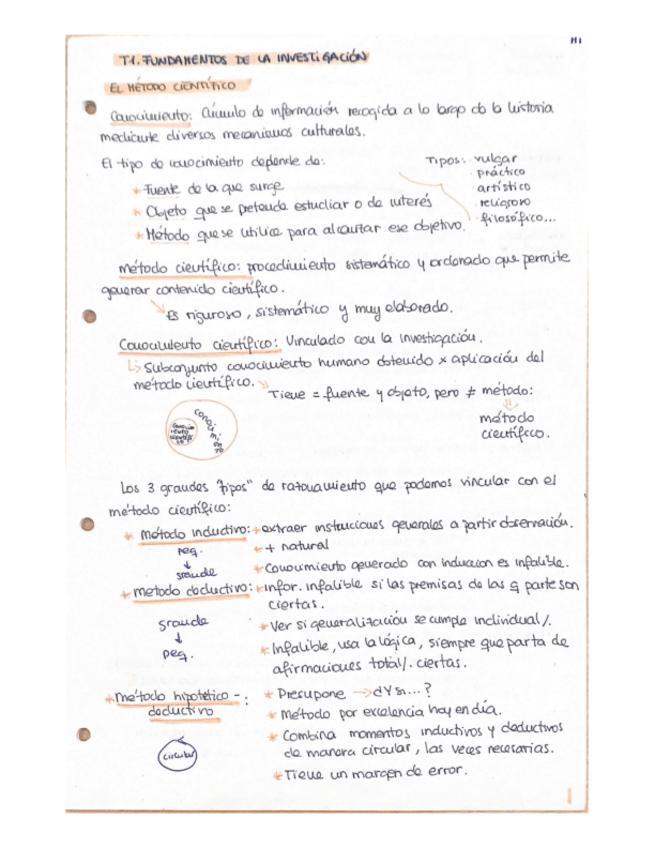 M1
T1. FUNDAMENTOS DE LA INVESTIGACIÓN
EL MÉTODO CIENTÍFICO
Conocimiento: Cúmulo de información recogida a lo largo de la historia
mediante diversos mecanismos culturales.
El tipo de conocimiento depende de:
* Fuente de la que surge
* Objeto que se pretende estudiar o de interés
* Método que se utilice para alcanzar ese objetivo.
Tipos: vulgar
· práctico
· artístico
· religioso
· filosófico...
Método científico: procedimiento sistemático y ordenado que permite
generar contenido científico.
Es riguroso, sistemático y muy elaborado.
Conocimiento científico: Vinculado con la investigación.
Subconjunto conocimiento humano obtenido x aplicación del
método científico.
Tiene = fuente y objeto, pero ≠ método:
método
científico.
conocimiento
conocimiento científico
Los 3 grandes "tipos" de razonamiento que podemos vincular con el
método científico:
* Método inductivo: * extraer instrucciones generales a partir observación.
peq.
↓
grande
* + natural
* Conocimiento generado con induccion es infalible.
* metodo deductivo: * Infor. infalible si las premisas de las q parte son
ciertas.
grande
↓
peq.
* Ver si generalización se cumple individual/.
* Infalible, usa la lógica, siempre que parta de
afirmaciones total/. ciertas.
* Método hipotético-:
deductivo
circular
* Presupone → ¿Y si...?
* Método por excelencia hoy en día.
* Combina momentos inductivos y deductivos
de manera circular, las veces necesarias.
* Tiene un margen de error.